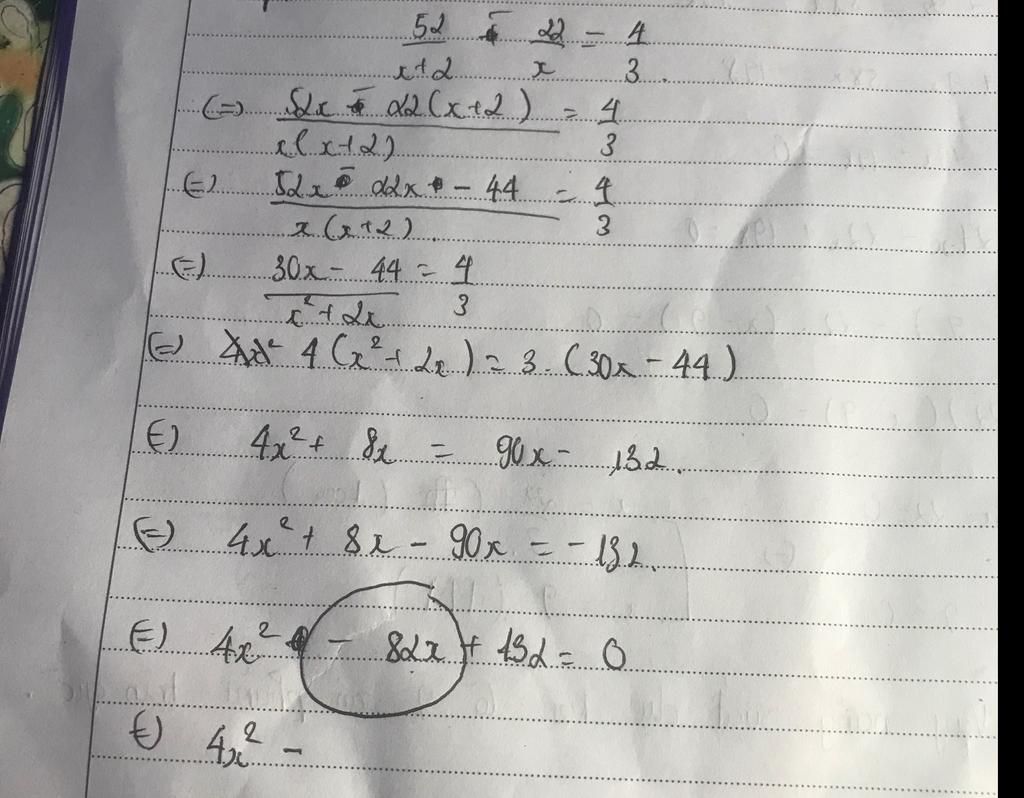 52/(x+2) - 22/x = 4/3.
(=) (52x - 22(x+2))/(x(x+2)) = 4/3
(=) (52x - 22x - 44)/(x(x+2)) = 4/3
(=) (30x - 44)/(x² + 2x) = 4/3
(=) 4(x² + 2x) = 3.(30x - 44)
(=) 4x² + 8x = 90x - 132.
(=) 4x² + 8x - 90x = -132.
(=) 4x² - 82x + 132 = 0
(=) 4x² -